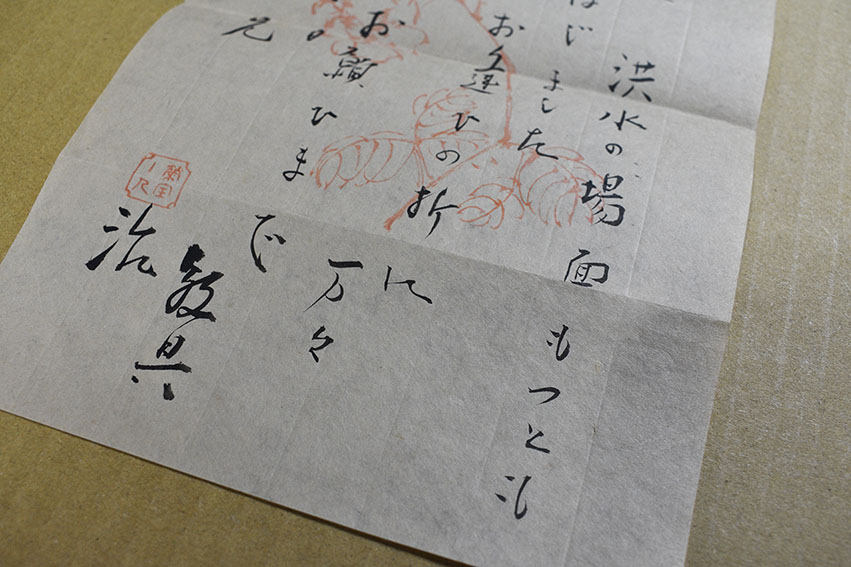 洪水の場面もつとも
じました
お逢ひの折に
万々
お願ひまで
敬具
治